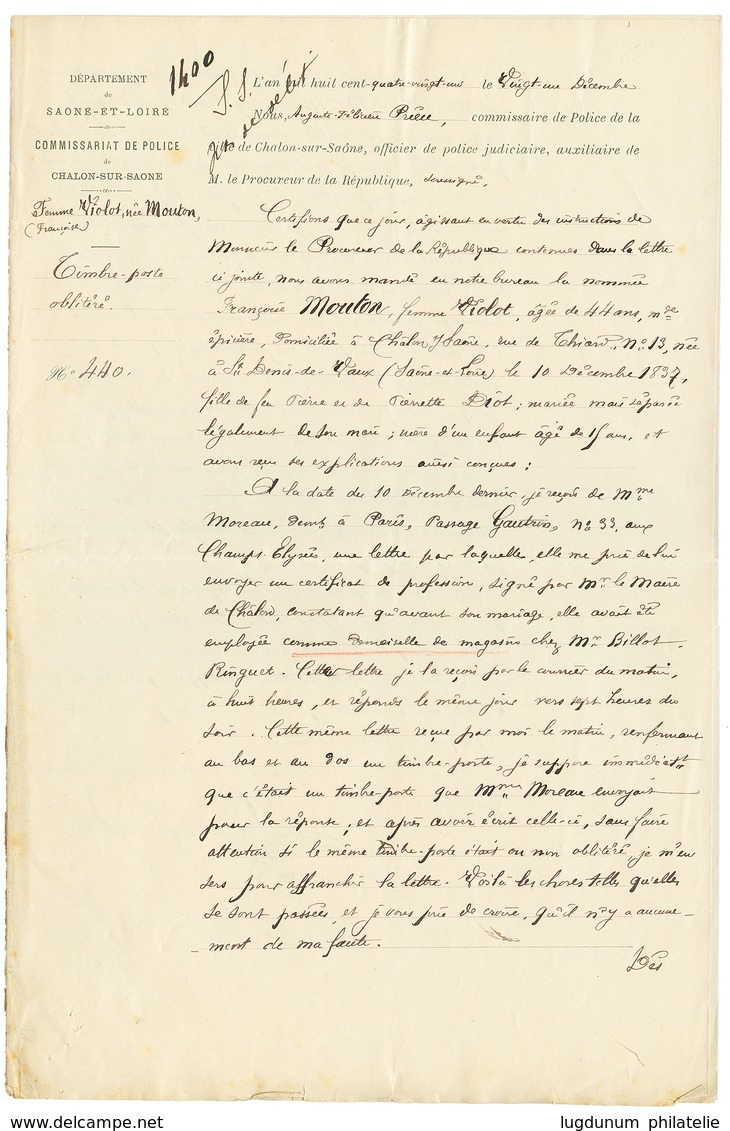 1h00
DÉPARTEMENT
de
SAONE-ET-LOIRE
COMMISSARIAT DE POLICE
de
CHALON-SUR-SAONE
Femme Violot, née Mouton,
(Françoise)
Timbre-poste
oblitéré.
No 440.
L'an mil huit cent quatre-vingt-un le Vingt-un Décembre
Nous, Auguste Félicien commissaire de Police de la
ville de Chalon-sur-Saône, officier de police judiciaire, auxiliaire de
M. le Procureur de la République, soussigné,
Certifions que ce jour, agissant en vertu des instructions de
Monsieur le Procureur de la République contenues dans la lettre
ci jointe, nous avons mandé en notre bureau la nommée
Françoise Mouton, femme Violot, âgée de 44 ans, mde
épicière, domiciliée à Châlon s/ Saône, rue de Thiard, No 13, née
à St Denis-de-Vaux (Saône-et-Loire) le 10 Décembre 1837,
fille de feu Pierre et de Pierrette Diot; mariée mais séparée
légalement de son mari; mère d'un enfant âgé de 15 ans, et
avons reçu ses explications ainsi conçues:
A la date du 10 Décembre dernier, je reçois de Mme
Moreau, demt à Paris, Passage Gautrin, no 33, aux
Champs-Elysées, une lettre par laquelle, elle me prie de lui
envoyer un certificat de profession, signé par Mr le Maire
de Châlon, constatant qu'avant son mariage, elle avait été
employée comme demoiselle de magasin chez Mr Billot-
Ringuet. Cette lettre je la reçois par le courrier du matin,
à huit heures, et réponds le même jour vers sept heures du
soir. Cette même lettre reçue par moi le matin, renfermant
au bas et au dos un timbre-poste, je suppose immédiatt
que c'était un timbre-poste que Mme Moreau envoyait
pour la réponse; et après avoir écrit celle-ci, sans faire
attention si le même timbre-poste était ou non oblitéré, je m'en
sers pour affranchir la lettre. Voilà les choses telles qu'elles
se sont passées, et je vous prie de croire, qu'il n'y a aucune-
ment de ma faute.
Des
www.delcampe.net
lugdunum philatelie